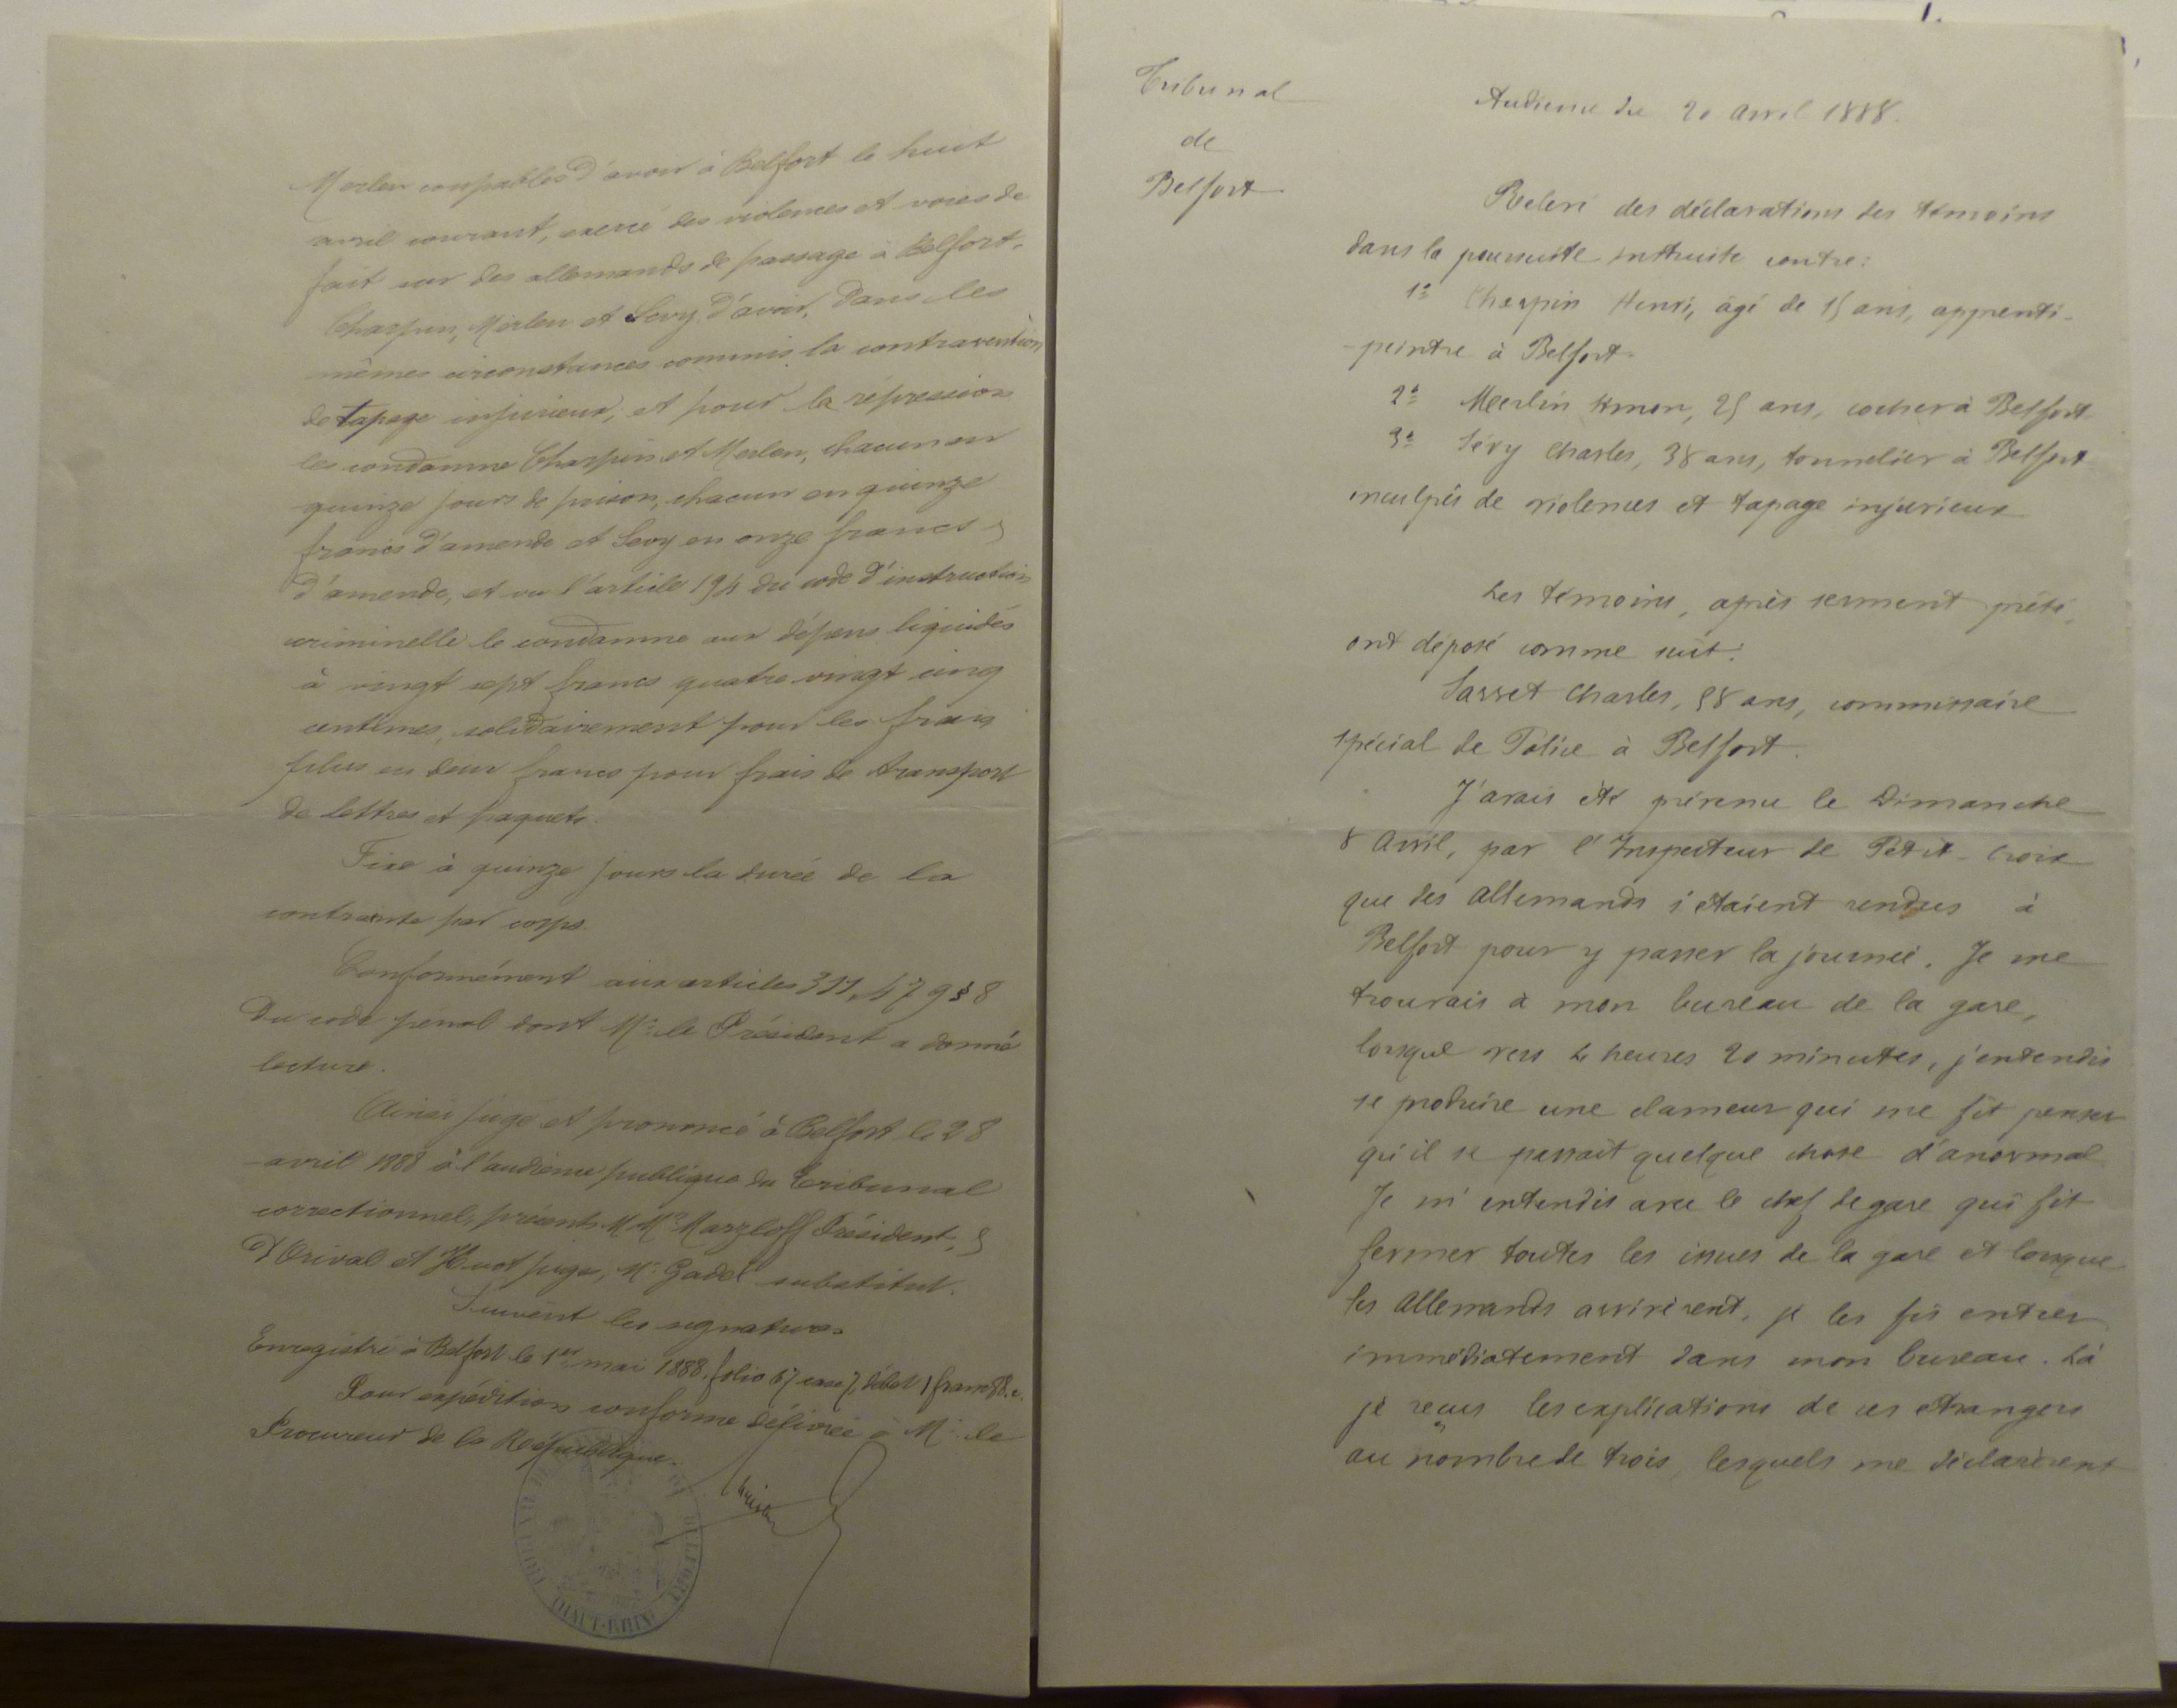 Merlen coupables d'avoir à Belfort le huit
avril courant, exercé des violences et voies de
fait sur des allemands de passage à Belfort.
Charpin, Merlen et Levy d'avoir, dans les
mêmes circonstances commis la contravention
de tapage injurieux, et pour la répression
les condamne Charpin et Merlen, chacun en
quinze jours de prison, chacun en quinze
francs d'amende et Levy en onze francs
d'amende, et vu l'article 194 du code d'instruction
criminelle le condamne aux dépens liquidés
à vingt sept francs quatre vingt cinq
centimes, solidairement pour les frais
plus en deux francs pour frais de transport
de lettres et paquets.
Fixe à quinze jours la durée de la
contrainte par corps.
Conformément aux articles 311, 479 § 8
du code pénal dont Mr. le Président a donné
lecture.
Ainsi jugé et prononcé à Belfort le 28
avril 1888 à l'audience publique du Tribunal
correctionnel, présents MMrs Marzloff Président,
D'Orival et Huot juge, Mr. Gadel substitut.
Suivent les signatures
Enregistré à Belfort le 1er mai 1888, folio 67 case 7, débet 1 franc 88 c.
Pour expédition conforme délivrée à Mr. le
Procureur de la République.
BELFORT
(HAUT-RHIN)
Tribunal
de
Belfort
Audience du 20 avril 1888.
Relevé des déclarations des témoins
dans la poursuite instruite contre:
1° Charpin Henri, âgé de 15 ans, apprenti-
-peintre à Belfort.
2° Merlin, 25 ans, cocher à Belfort
3° Lévy Charles, 38 ans, tonnelier à Belfort
inculpés de violences et tapage injurieux
Les témoins, après serment prêté,
ont déposé comme suit:
Sasset Charles, 58 ans, commissaire
spécial de Police à Belfort.
J'avais été prévenu le Dimanche
8 avril, par l'Inspecteur de Petit-Croix
que des allemands s'étaient rendus à
Belfort pour y passer la journée. Je me
trouvais à mon bureau de la gare,
lorsque vers 4 heures 20 minutes, j'entendis
se produire une clameur qui me fit penser
qu'il se passait quelque chose d'anormal
Je m'entendis avec le chef de gare qui fit
fermer toutes les issues de la gare et lorsque
les Allemands arrivèrent, je les fis entrer
immédiatement dans mon bureau. Là
je reçus les explications de ces étrangers
au nombre de trois, lesquels me déclarèrent